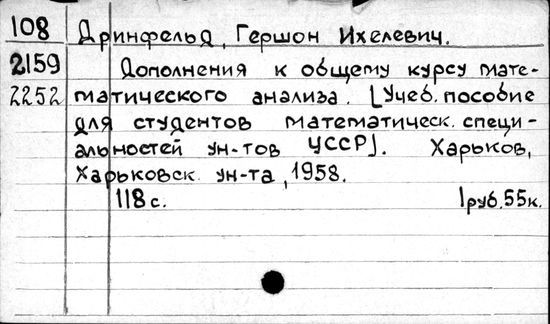 108 Дринфельд, Гершон Ихелевич.
2159 Дополнения к общему курсу мате-
2252 матического анализа. [Учеб. пособие
для студентов математическ. специ-
альностей ун-тов УССР]. Харьков,
Харьковск. ун-та, 1958.
118 с. 1 руб. 55 к.